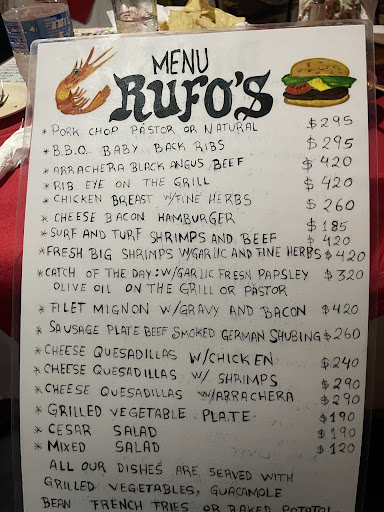 MENU
RUFO'S
* PORK CHOP PASTOR OR NATURAL $295
* B.B.Q. BABY BACK RIBS $295
* ARRACHERA BLACK ANGUS BEEF $420
* RIB EYE ON THE GRILL $420
* CHICKEN BREAST W/FINE HERBS $260
* CHEESE BACON HAMBURGER $185
* SURF AND TURF SHRIMPS AND BEEF $420
* FRESH BIG SHRIMPS W/GARLIC AND FINE HERBS $420
* CATCH OF THE DAY: W/GARLIC FRESH PARSLEY $320
OLIVE OIL ON THE GRILL OR PASTOR
* FILET MIGNON W/GRAVY AND BACON $420
* SAUSAGE PLATE BEEF SMOKED GERMAN SHUBING $260
* CHEESE QUESADILLAS W/CHICKEN $240
* CHEESE QUESADILLAS W/ SHRIMPS $290
* CHEESE QUESADILLAS W/ARRACHERA $290
* GRILLED VEGETABLE PLATE $190
* CESAR SALAD $190
* MIXED SALAD $120
ALL OUR DISHES ARE SERVED WITH
GRILLED VEGETABLES, GUACAMOLE
BEAN FRENCH FRIES OR BAKED POTATO